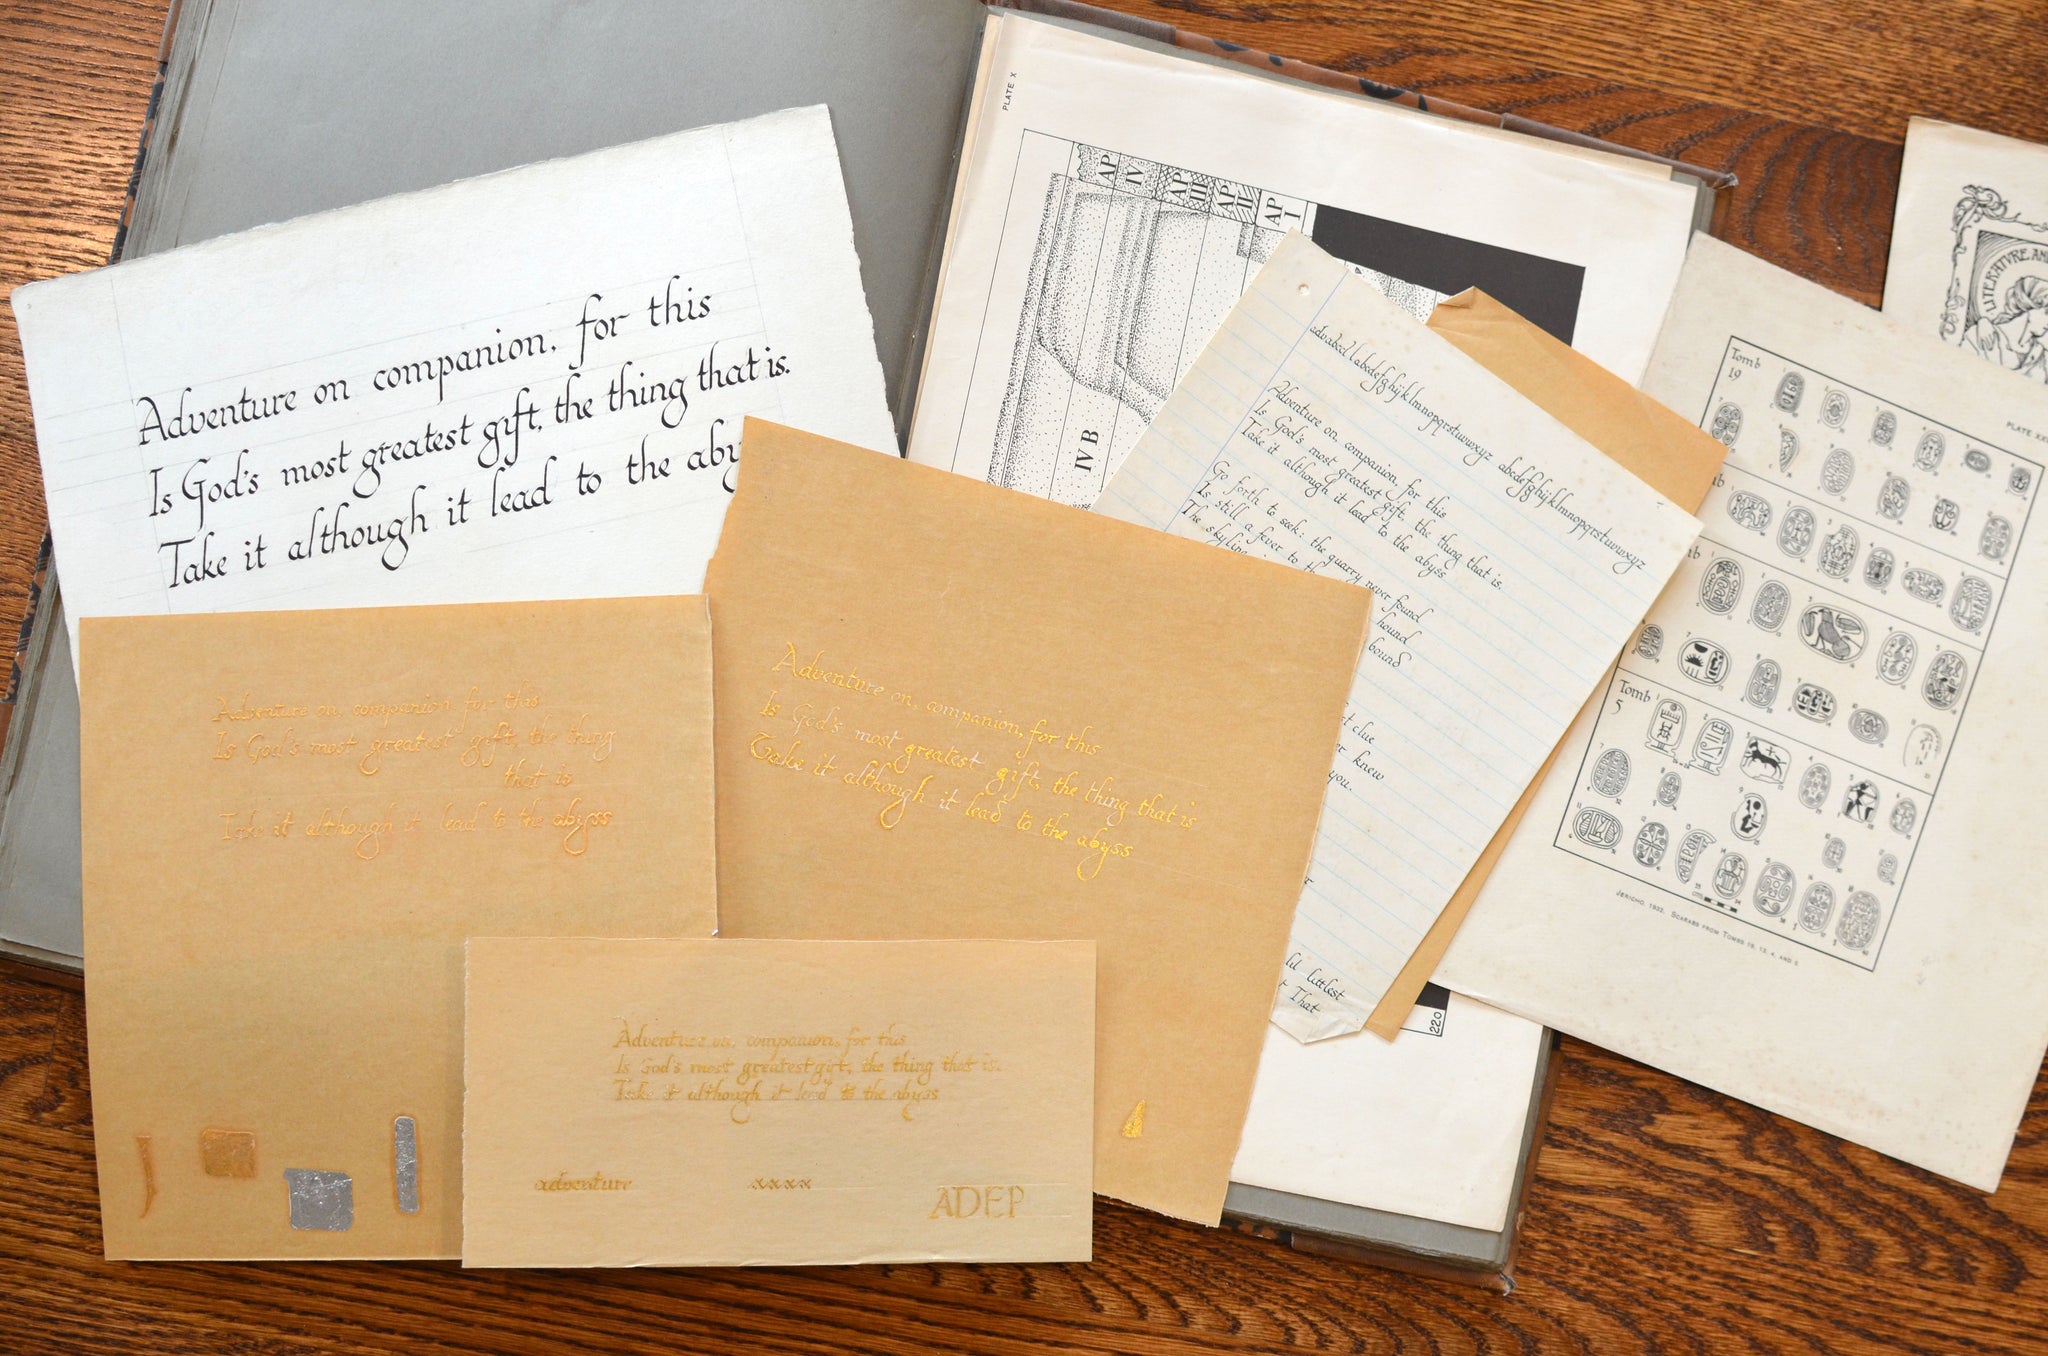 Adventure on companion, for this
Is God's most greatest gift, the thing that is.
Take it although it lead to the aby
PLATE X
AP IV
AP III
AP II
AP I
IV B
220
advabcd labcdefghijklmnopqrstuvwxyz abcdefghijklmnopqrstuvwxyz
Adventure on, companion, for this
Is God's most greatest gift, the thing that is.
Take it although it lead to the abyss
Go forth to seek: the quarry never found
Is still a fever to the hound
The skyline bound
t clue
r knew
you.
lil littlest
t That
LITERATVRE AN
PLATE XX
Tomb 19
b
b
Tomb 5
CMS
JERICHO, 1932. SCARABS FROM TOMBS 19, 13, 4, AND 5.
Adventure on, companion for this
Is God's most greatest gift, the thing
that is
Take it although it lead to the abyss
Adventure on, companion, for this
Is God's most greatest gift, the thing that is
Take it although it lead to the abyss
Adventure on, companion, for this
Is God's most greatest gift, the thing that is.
Take it although it lead to the abyss
adventure xxxx ADEP